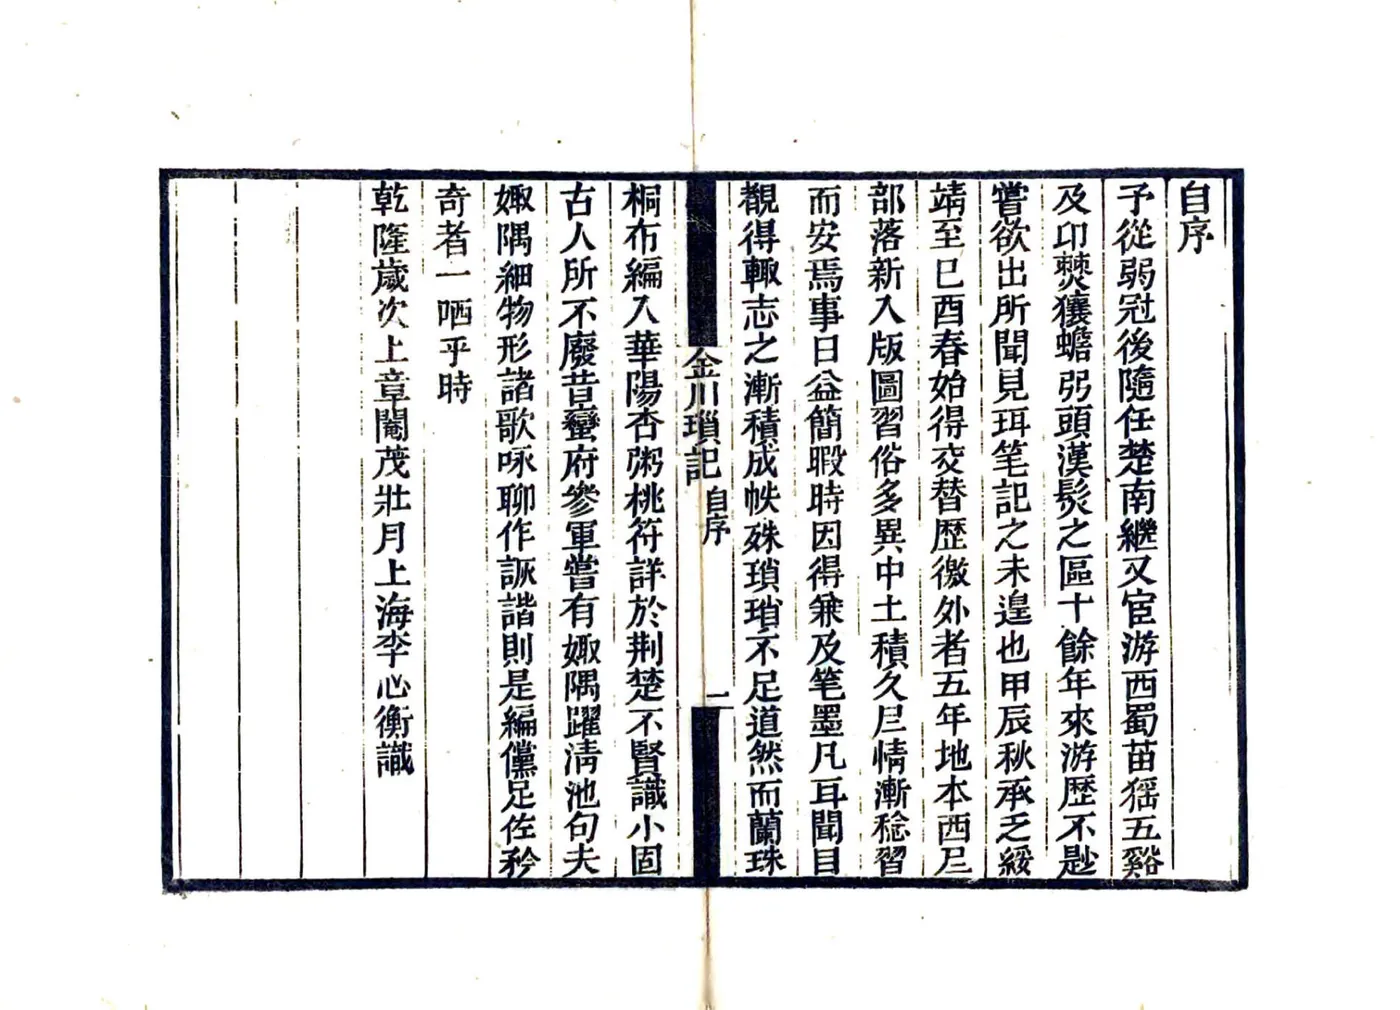 自序
予從弱冠後隨任楚南繼又宦游西蜀苗猺五谿
及卭僰獽蟾弜頭漢髳之區十餘年來游歷不尠
嘗欲出所聞見珥笔記之未遑也甲辰秋承乏綏
靖至巳酉春始得交替歷徼外者五年地本西𡰥
部落新入版圖習俗多異中土積久𡰥情漸稔習
而安焉事日益簡暇時因得兼及笔墨凡耳聞目
覩得輙志之漸積成帙殊瑣瑣不足道然而蘭珠
金川瑣記 自序 一
桐布編入華陽杏粥桃符詳於荆楚不賢識小固
古人所不廢昔蠻府參軍嘗有娵隅躍淸池句夫
娵隅細物形諸歌咏聊作詼諧則是編儻足佐矜
奇者一哂乎時
乾隆歲次上章閹茂壯月上海李心衡識